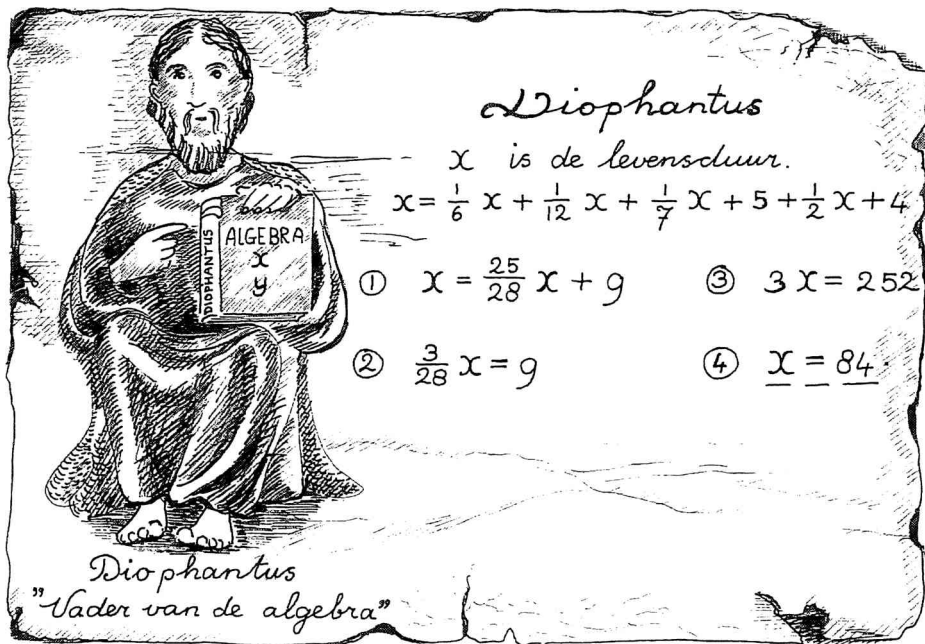 Diophantus
x is de levensduur.
x = 1/6 x + 1/12 x + 1/7 x + 5 + 1/2 x + 4
① x = 25/28 x + 9
② 3/28 x = 9
③ 3x = 252
④ x = 84.
DIOPHANTUS
ALGEBRA
x
y
Diophantus
"Vader van de algebra"